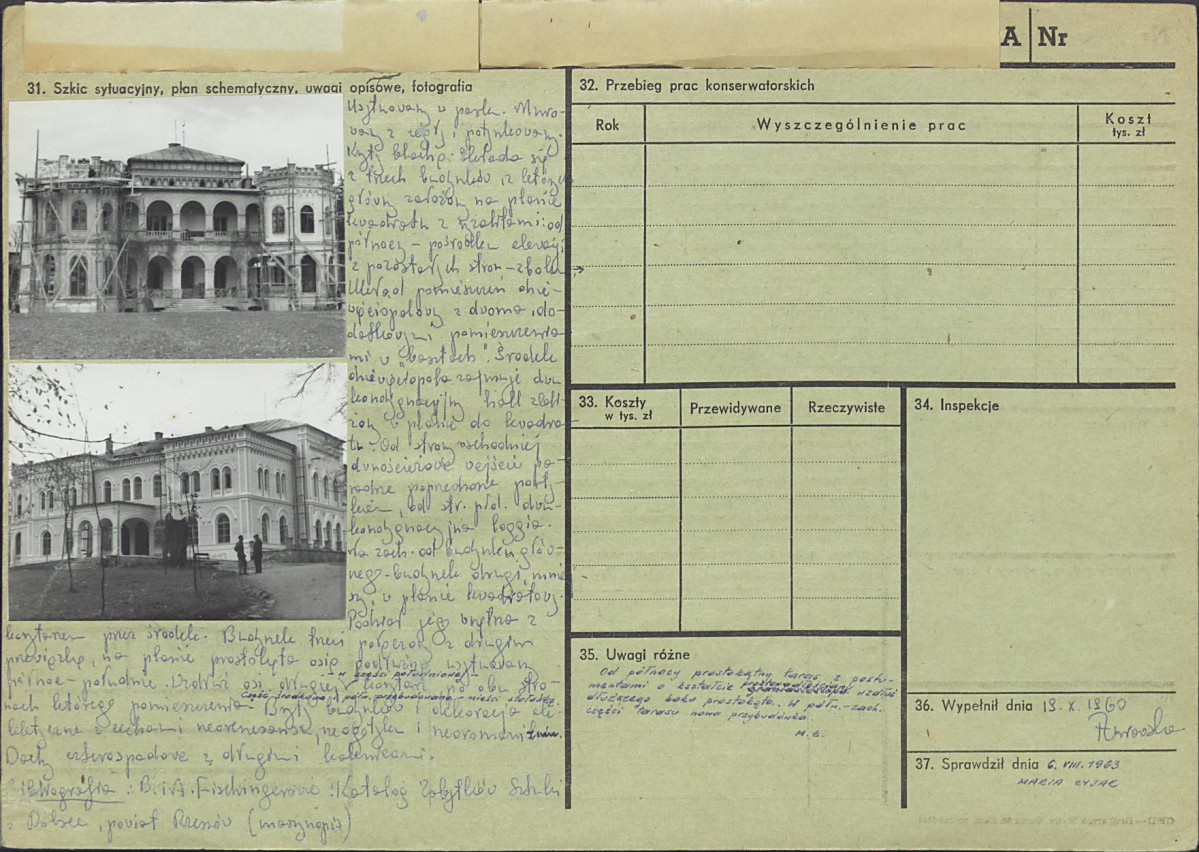 A Nr
31. Szkic sytuacyjny, plan schematyczny, uwagi opisowe, fotografia
Usytuowany w parku. Muro-
wany z cegły i potynkowany.
Kryty blachą. Składa się
z trzech budynków, z których
główny założony na planie
kwadratu z : od
północy – pośrodku elewacji
z pozostałych stron – z boku
Układ pomieszczeń dzie-
więciopolowy z dwoma do-
datkowymi pomieszczenia-
mi w "basztach". Środek
dziewięciopola zajmuje dwu
kondygnacyjny hall zbli-
żony w planie do kwadra-
tu. Od strony wschodniej
wejście po-
poprzedzone porty-
kiem, od str. płd. dwu-
kondygnacyjna loggia.
Na zach. od budynku głów-
nego – budynek drugi, mniej-
szy, w planie kwadratowy.
Podział jego wnętrz z
korytarzem przez środek. Budynek trzeci połączony z drugim
przewiązką, na planie prostokąta osią podłużną usytuowany
północ – południe. Wzdłuż osi dłuższej korytarz po obu stro-
w części południowej
nach którego pomieszczenia
część środkowa i płn. przebudowana – mieści stołówkę.
Bryły budynków i dekoracja ek-
lektyczne z cechami neorenesansu, neogotyku i neoromanizmu.
Dachy czterospadowe z drugimi kalenicami.
Bibliografia: B. i A. Fischingerowie: Katalog Zabytków Sztuki
w Polsce, powiat Rzeszów (maszynopis)
32. Przebieg prac konserwatorskich
Rok
Wyszczególnienie prac
Koszt
tys. zł
33. Koszty
w tys. zł
Przewidywane
Rzeczywiste
34. Inspekcje
35. Uwagi różne
Od północy prostokątny taras z postu-
mentami o kształcie wzdłuż
dłuższego boku prostokąta. W półn.-zach.
części tarasu nowa przybudówka.
M. C.
36. Wypełnił dnia 19. X. 1960
37. Sprawdził dnia 6. VIII. 1963
MARIA CYJAK